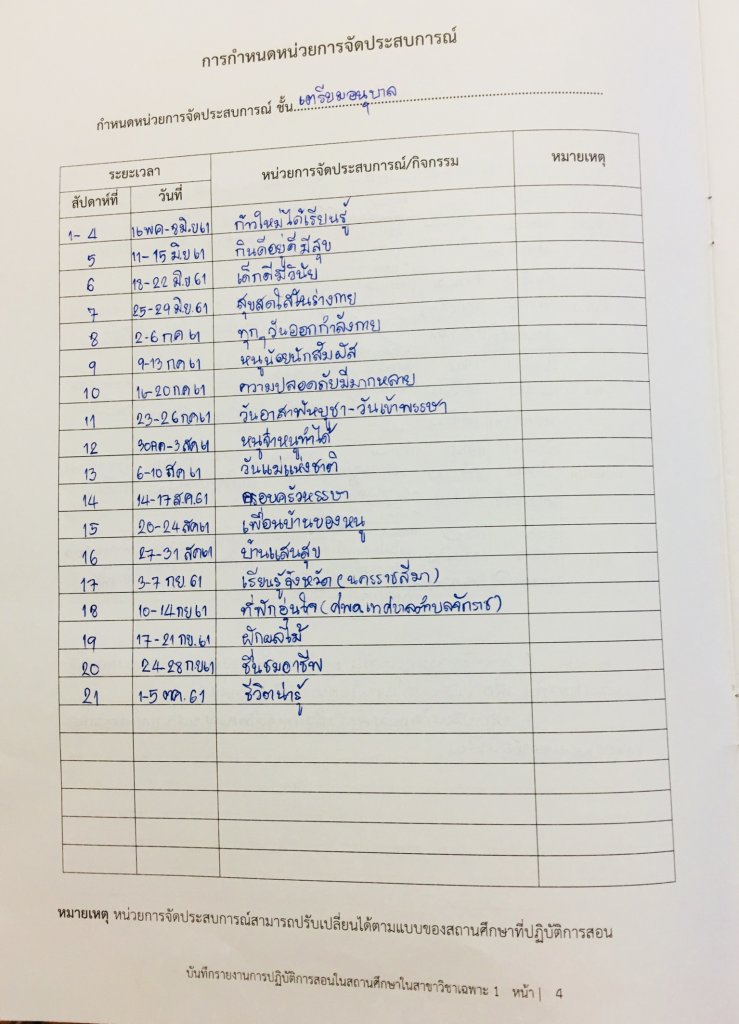 การกำหนดหน่วยการจัดประสบการณ์
กำหนดหน่วยการจัดประสบการณ์ ชั้น เตรียมอนุบาล
ระยะเวลา หน่วยการจัดประสบการณ์/กิจกรรม หมายเหตุ
สัปดาห์ที่ วันที่
1-4 16พค-8มิ.ย61 ก้าวใหม่ได้เรียนรู้
5 11-15 มิย 61 กินดีอยู่ดีมีสุข
6 18-22 มิย 61 เด็กดีมีวินัย
7 25-29 มิย.61 สุขสดใสในร่างกาย
8 2-6 กค 61 ทุกๆวันออกกำลังกาย
9 9-13 กค 61 หนูน้อยนักสัมผัส
10 16-20 กค 61 ความปลอดภัยมีมากหลาย
11 23-26 กค 61 วันอาสาฬหบูชา-วันเข้าพรรษา
12 30กค-3สค 61 หนูจ๋าหนูทำได้
13 6-10 สค 61 วันแม่แห่งชาติ
14 14-17 ส.ค.61 ครอบครัวหรรษา
15 20-24 สค61 เพื่อนบ้านของหนู
16 27-31 สค61 บ้านแสนสุข
17 3-7 กย. 61 เรียนรู้จังหวัด (นครราชสีมา)
18 10-14 กย 61 ที่พักอุ่นใจ (ศพด.เทศบาลตำบลจักราช)
19 17-21 กย. 61 ผักผลไม้
20 24-28 กย61 ชื่นชมอาชีพ
21 1-5 ตค. 61 ชีวิตน่ารู้
หมายเหตุ หน่วยการจัดประสบการณ์สามารถปรับเปลี่ยนได้ตามแบบของสถานศึกษาที่ปฏิบัติการสอน
บันทึกรายงานการปฏิบัติการสอนในสถานศึกษาในสาขาวิชาเฉพาะ 1 หน้า | 4